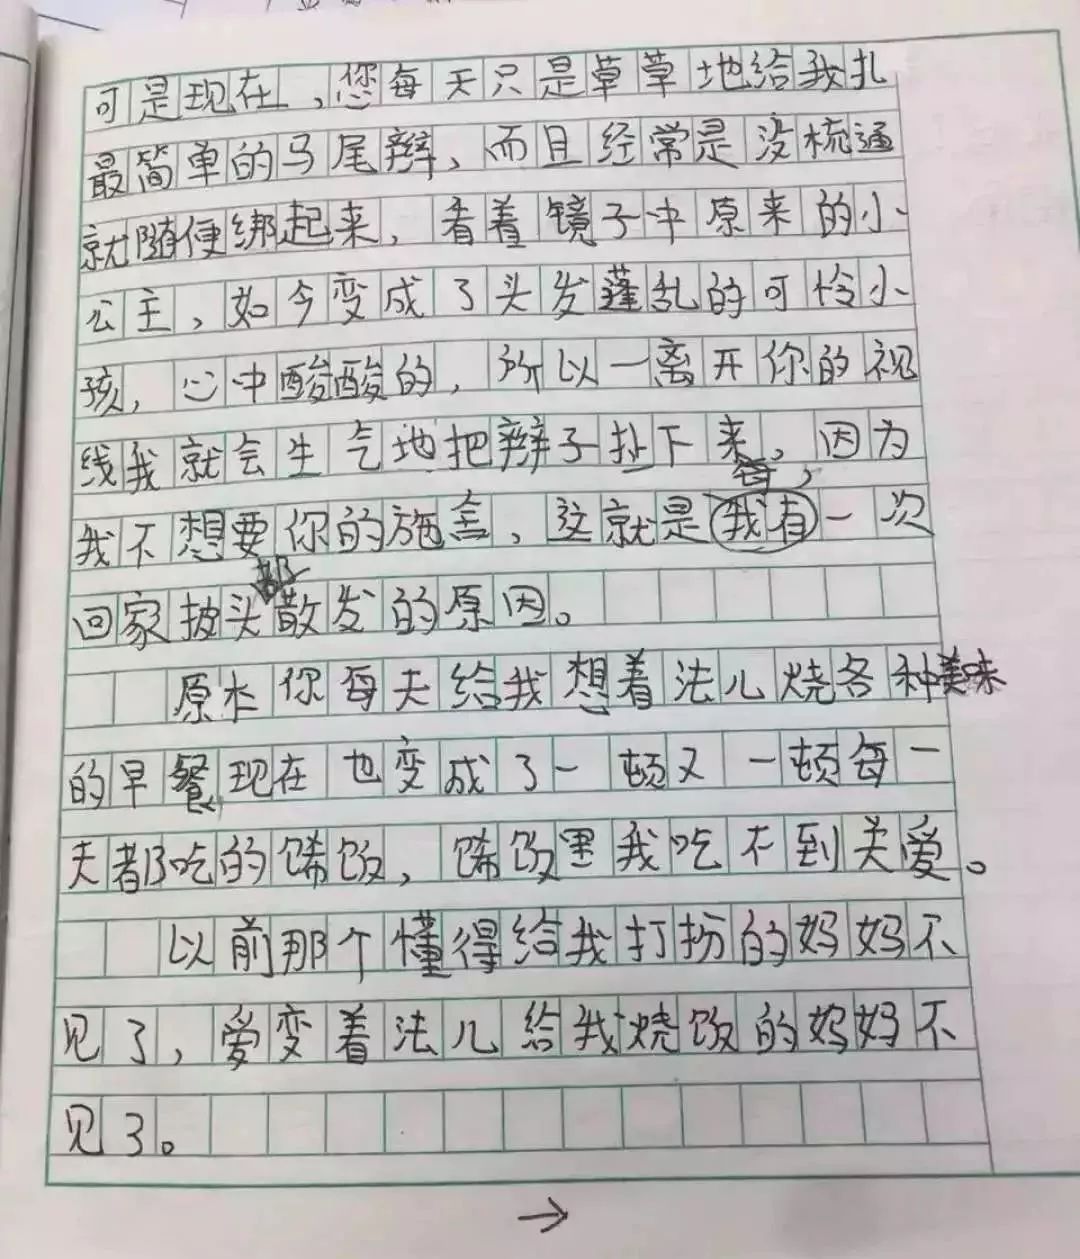 可是现在,您每天只是草草地给我扎
最简单的马尾辫,而且经常是没梳通
就随便绑起来,看着镜子中原来的小
公主,如今变成了头发蓬乱的可怜小
孩,心中酸酸的,所以一离开你的视
线我就会生气地把辫子扯下来,因为
每,
我不想要你的施舍,这就是我有一次
都
回家披头散发的原因。
原本你每天给我想着法儿烧各种美味
的早餐,现在也变成了一顿又一顿每一
天都吃的馊饭,馊饭里我吃不到关爱。
以前那个懂得给我打扮的妈妈不
见了,爱变着法儿给我烧饭的妈妈不
见了。
→